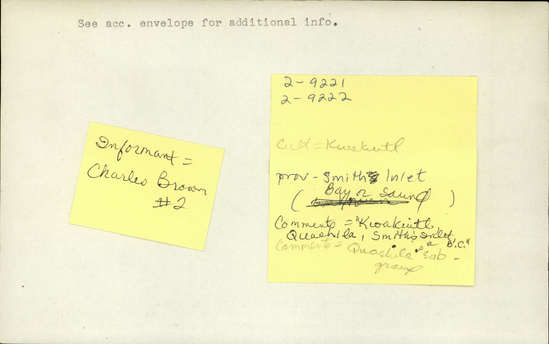 See acc. envelope for additional info.
Informant =
Charles Brown
#2
2-9221
2-9222
Cult = Kwakiutl
prov - Smith Inlet
( Bay or Sound )
Comments = "Kwakiutl,
Quashila, Smith's Inlet, B.C."
Comments = Quashila "a sub-
group